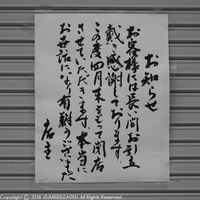 お知らせ
お客様には長い間お引立
戴き感謝しております。
この度四月末をもって閉店
させていただきます。本当に
お世話になり有難うございました
店主
Copyright © 2018 IZUMISEKIZAITEN All Rights Reserved.